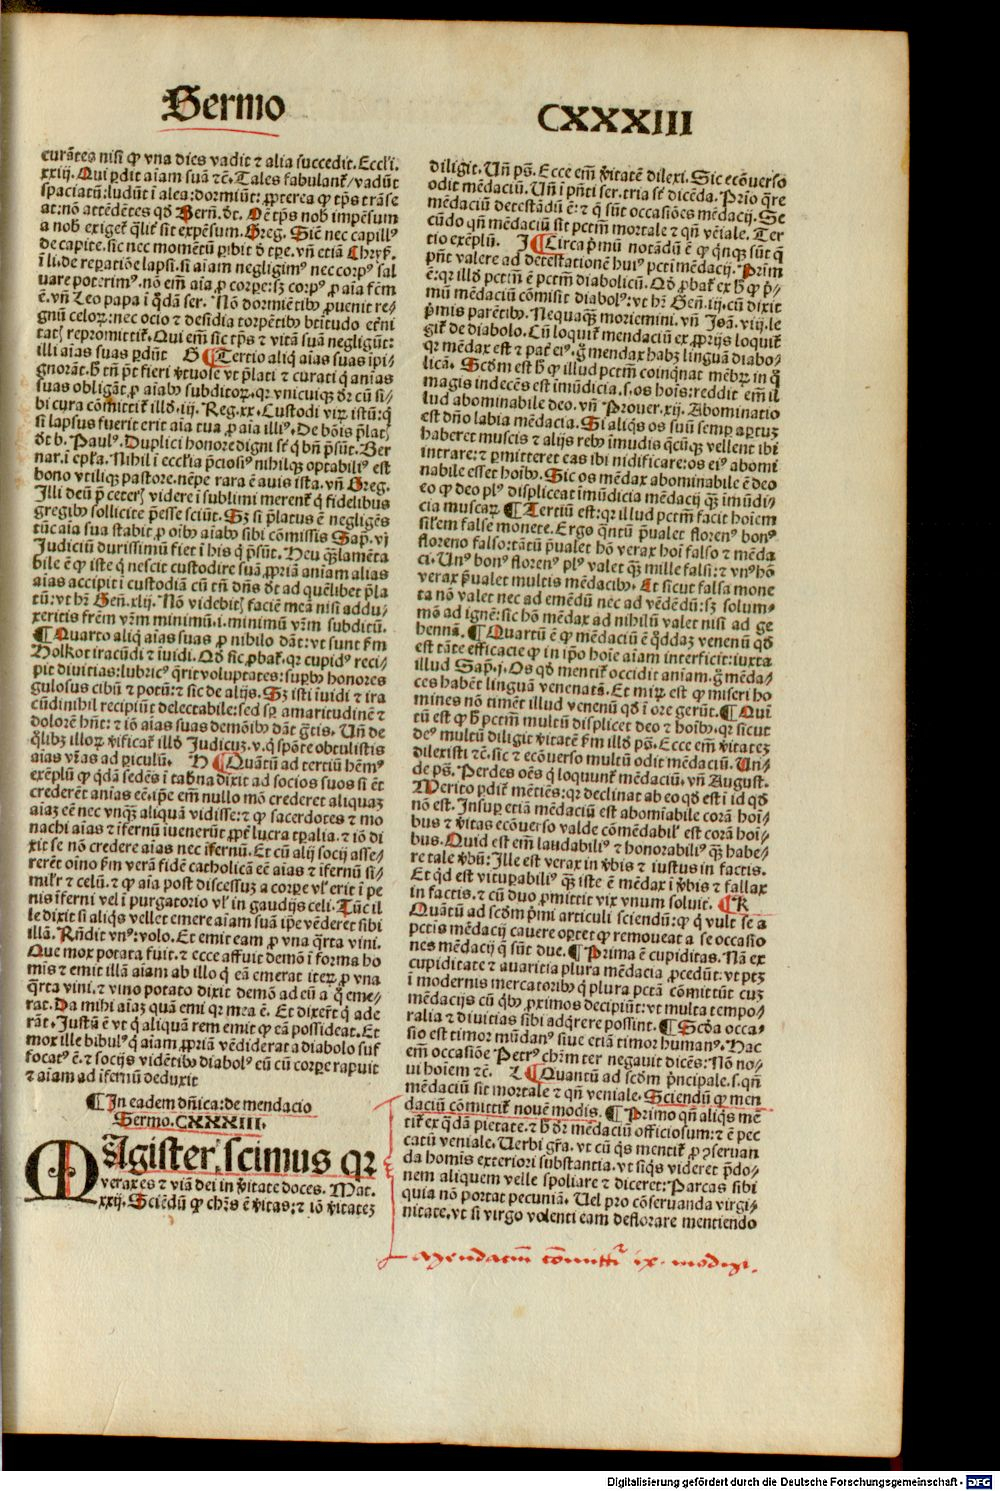 Sermo
CXXXIII
curātes nisi ꝙ vna dies vadit ⁊ alia succedit. Eccl'i.
xxiij. Qui ꝑdit aīam suā ⁊c̄. Tales fabulant̄/ vadūt
spaciatū: ludūt ī alea: dormiūt: ꝓpterea ꝙ tp̄s trāse
at: nō attēdētes qd̓ Bern̄. dt. Oē tp̄s nob̓ impēsum
a nob̓ exiget̄ qlit̄ sit expēsum. Greg. Sic̄ nec capillꝰ
de capite. sic nec momētū ꝑibit d̓ tꝑe. vn̄ etiā Chryſ.
ī li. de reꝑatiōe lapsi. si aīam negligimꝰ nec corpꝰ sal
uare poterimꝰ. nō em̄ aīa ꝓ corꝑe: sꝫ corpꝰ ꝓ aīa fēm
ē. vn̄ Leo papa ī q̄dā ser. Nō dormiētibꝰ ꝓuenit re⸗
gnū celoꝝ: nec ocio ⁊ desidia torpētibꝰ btītudo et̄ni
tatꝭ repromittit̄. Qui em̄ sic tp̄s ⁊ vitā suā negligūt:
illi aīas suas ꝑdūt G ¶ Tertio aliq̄ aīas suas īpi⸗
gnorāt. h̓ tn̄ pt̄ fieri v̓tuose vt p̄lati ⁊ curati q̄ anīas
suas obligāt ꝓ aīabꝰ subditoꝝ. qꝛ vnicuiqꝫ dr̄ cū si⸗
bi cura cōmittit̄ illd̓. iij. Reg. xx. Custodi viꝝ istū: q̄
si lapsus fuerit erit aīa tua ꝓ aīa illiꝰ. De bōis p̄latꝭ
dt b. Paulꝰ. Duplici honore digni st̄ q̄ bn̄ p̄sūt. Ber
nar. ī epl̄a. Nihil ī eccl'ia p̄ciosiꝰ nihilqꝫ optabiliꝰ est
bono vtiliqꝫ pastore. nēpe rara ē auis ista. vn̄ Greg.
Illi deū p̄ ceterꝭ videre ī sublimi merent̄ q̄ fidelibus
gregibꝰ sollicite p̄esse sciūt. Sꝫ si p̄latus ē negligēs
tūc aīa sua stabit ꝓ oībꝰ aīabꝰ sibi cōmissis Sap. vj
Judiciū durissimū fiet ī his q̄ p̄sūt. Heu qꝫ lamēta
bile ē ꝙ iste q̄ nescit custodire suā ꝓpriā aniam alias
aīas accipit ī custodiā cū tn̄ dn̄s dt ad quēlibet p̄la
tū: vt hr̄ Gen̄. xlij. Nō videbitꝭ faciē meā nisi addu⸗
xeritis frēm vr̄m minimū. i. minimū vr̄m subditū.
¶ Quarto aliq̄ aīas suas ꝓ nihilo dāt: vt sunt ẜm
Holkot iracūdi ⁊ īuidi. Qd̓ sic ꝓbat̄. qꝛ cupidꝰ reci⸗
pit diuitias: lubricꝰ q̄rit voluptates: suꝑbꝰ honores
gulosus cibū ⁊ potū: ⁊ sic de alijs. Sꝫ isti īuidi ⁊ ira
cūdi nihil recipiūt delectabile: sed sꝑ amaritudinē ⁊
dolorē hn̄t: ⁊ iō aīas suas demōibꝰ dāt gr̄tis. Un̄ de
q̄libꝫ illoꝝ v̓ificat̄ illd̓ Judicuꝫ. v. q̄ spōte obtulistis
aīas vr̄as ad ꝑiculū. H ¶ Quātū ad tertiū hēmꝰ
exēplū ꝙ q̄dā sedēs ī tab̓na dixit ad socios suos si ēt
crederēt anīas eē. ip̄e em̄ nullo mō crederet aliquaꝫ
aīaꝫ eē nec vnqꝫ aliquā vidisse: ⁊ ꝙ sacerdotes ⁊ mo
nachi aīas ⁊ īfernū īuenerūt ꝓpt̄ lucra tꝑalia. ⁊ iō di
xit se nō credere aīas nec īfernū. Et cū alij socij asse⸗
rerēt oīno ẜm verā fidē catholicā eē aīas ⁊ īfernū si⸗
milr̄ ⁊ celū. ⁊ ꝙ aīa post discessuꝫ a corꝑe vl̓ erit ī pe
nis īferni vel ī purgatorio vl̓ in gaudijs celi. Tūc il
le dixit si aliqs vellet emere aīam suā ip̄e vēderet sibi
illā. Rn̄dit vnꝰ: volo. Et emit eam ꝓ vna q̄rta vini.
Que mox potata fuit. ⁊ ecce affuit demō ī forma ho
mīs ⁊ emit illā aīam ab illo q̄ eā emerat iteꝝ ꝓ vna
q̄rta vini. ⁊ vino potato dixit demō ad eū a q̄ eme⸗
rat. Da mihi aīaꝫ quā emi qꝛ mea ē. Et dixert̄ q̄ ade
rāt. Justū ē vt q̄ aliquā rem emit ꝙ eā possideat. Et
mox ille bibulꝰ q̄ aīam ꝓpriā vēdiderat a diabolo suf
focatꝰ ē. ⁊ socijs vidētibꝰ diabolꝰ eū cū corꝑe rapuit
⁊ aīam ad īfernū deduxit
¶ In eadem dn̄ica: de mendacio
Sermo. CXXXIII.
MAgister, scimus qꝛ
verax es ⁊ viā dei in v̓itate doces. Mat.
xxij. Sciēdū ꝙ chr̄s ē v̓itas: ⁊ iō v̓itateꝫ
diligit. Un̄ ps̄. Ecce em̄ v̓itatē dilexi. Sic ecōuerso
odit mēdaciū. Un̄ ī pn̄ti ser. tria st̄ dicēda. Prīo q̄re
mēdaciū detestādū ē: ⁊ q̄ sūt occasiōes mēdacij. Se
cūdo qn̄ mēdaciū sit pctm̄ mortale ⁊ qn̄ vēiale. Ter
tio exēplū. I ¶ Circa p̄mū notādū ē ꝙ q̄nqꝫ sūt q̄
pn̄t valere ad detestationē huiꝰ pctī mēdacij. Prim
ē: qꝛ illd̓ pctm̄ ē pctm̄ diabolicū. Qd̓ ꝓbat̄ ex h̓ ꝙ p̄⸗
mū mēdaciū cōmisit diabolꝰ: vt hr̄ Gen̄. iij. cū dixit
p̄mis parētibꝰ. Nequaqꝫ moriemini. vn̄ Joā. viij. le
git̄ de diabolo. Cū loquit̄ mendaciū ex ꝓprijs loquit̄
qꝛ mēdax est ⁊ pat̄ eiꝰ. g̊ mendax habꝫ linguā diabo⸗
licā. Scd̓m est h̓ ꝙ illud pctm̄ coinqnat mēbꝝ in q̄
magis indecēs est imūdicia. s. os hoīs: reddit em̄ il
lud abominabile deo. vn̄ Prouer. xij. Abominatio
est dn̄o labia mēdacia. Si aliqs os suū semꝑ aꝑtuꝫ
haberet muscis ⁊ alijs rebꝰ īmudis q̄cūqꝫ vellent ibi
intrare: ⁊ ꝑmitteret eas ibi nidificare: os eiꝰ abomi
nabile esset hoībꝰ. Sic os mēdax abominabile ē deo
eo ꝙ deo plꝰ displiceat īmūdicia mēdacij qꝫ īmūdi⸗
cia muscaꝝ ¶ Tertiū est: qꝛ illud pctm̄ facit hoīem
sil'em false monete. Ergo q̄ntū p̄ualet florenꝰ bonꝰ
floreno falso: tātū p̄ualet hō verax hoī falso ⁊ mēda
ci. Unꝰ bonꝰ florenꝰ plꝰ valet qꝫ mille falsi: ⁊ vnꝰ hō
verax p̄ualet multis mēdacibꝰ. Et sicut falsa mone
ta nō valet nec ad emēdū nec ad vēdēdū: sꝫ solum⸗
mō ad ignē: sic hō mēdax ad nihilū valet nisi ad ge
hennā. ¶ Quartū ē ꝙ mēdaciū ē q̄ddaꝫ venenū qd̓
est tāte efficacie ꝙ in ip̄o hoīe aīam interficit: iuxta
illud Sap. j. Os qd̓ mentit̄ occidit aniam. g̊ mēda⸗
ces habēt linguā venenatā. Et miꝝ est ꝙ miseri ho
mines nō timēt illud venenū qd̓ ī ore gerūt. ¶ Quī
tū est ꝙ h̓ pctm̄ multū displicet deo ⁊ hoībꝰ. qꝛ sicut
deꝰ multū diligit v̓itatē ẜm illd̓ ps̄. Ecce em̄ v̓itateꝫ
dilexisti ⁊c̄. sic ⁊ ecōuerso multū odit mēdaciū. Un⸗
de ps̄. Perdes oēs q̄ loquunt̄ mēdaciū. vn̄ August.
Merito ꝑdit̄ mētiēs: qꝛ declinat ab eo qd̓ est ī id qd̓
nō est. Insuꝑ etiā mēdaciū est abomīabile corā hoī⸗
bus ⁊ v̓itas ecōuerso valde cōmēdabil' est corā hoī⸗
bus. Quid est em̄ laudabiliꝰ ⁊ honorabiliꝰ qꝫ habe⸗
re tale v̓bū: Ille est verax in v̓bis ⁊ iustus in factis.
Et qd̓ est vituꝑabiliꝰ qꝫ iste ē mēdax ī v̓bis ⁊ fallax
in factis. ⁊ cū duo ꝓmittit vix vnum soluit. ¶ K
Quātū ad scd̓m p̄mi articuli sciendū: ꝙ q̄ vult se a
pctīs mēdacij cauere oꝑtet ꝙ remoueat a se occasio
nes mēdacij q̄ sūt due. ¶ Prima ē cupiditas. Nā ex
cupiditate ⁊ auaritia plura mēdacia ꝓcedūt: vt ptꝫ
ī modernis mercatoribꝰ q̄ plura pctā cōmittūt cuꝫ
mēdacijs cū q̄bꝰ ꝓximos decipiūt: vt multa tempo⸗
ralia ⁊ diuitias sibi adq̄rere possint. ¶ Scd̓a occa⸗
sio est timor mūdanꝰ siue etiā timor humanꝰ. Hac
em̄ occasiōe Petrꝰ chr̄m ter negauit dicēs: Nō no⸗
ui hoīem ⁊c̄. L ¶ Quantū ad scd̓m p̄ncipale. s. qn̄
mēdaciū sit mortale ⁊ qn̄ veniale. Sciendū ꝙ men
daciū cōmittit̄ nouē modis. ¶ Primo qn̄ aliqs mē
tit̄ ex q̄dā pietate. ⁊ h̓ dr̄ mēdaciū officiosum: ⁊ ē pec
catū veniale. Uerbi gr̄a. vt cū qs mentit̄ ꝓ ꝯseruan
da homīs exteriori substantia. vt siqs videret p̄do⸗
nem aliquem velle spoliare ⁊ diceret: Parcas sibi
quia nōn portat pecuniā. Uel pro cōseruanda virgi⸗
nitate. vt si virgo volenti eam deflorare mentiendo
Mendacium comittitur ix. modis.
Digitalisierung gefördert durch die Deutsche Forschungsgemeinschaft - DFG